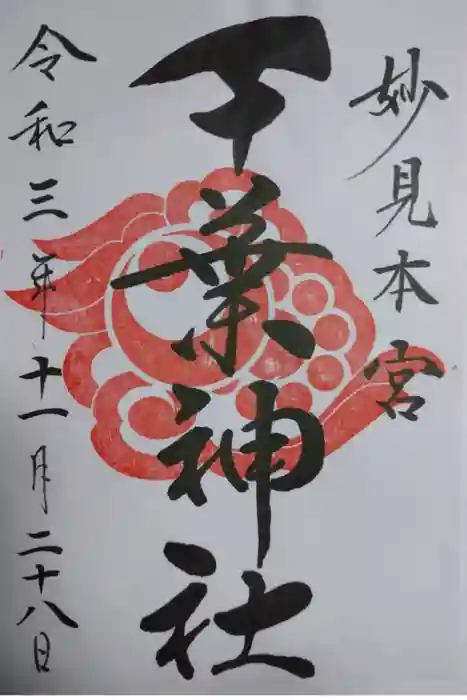 妙見本宮
千葉神社
令和三年十一月二十八日